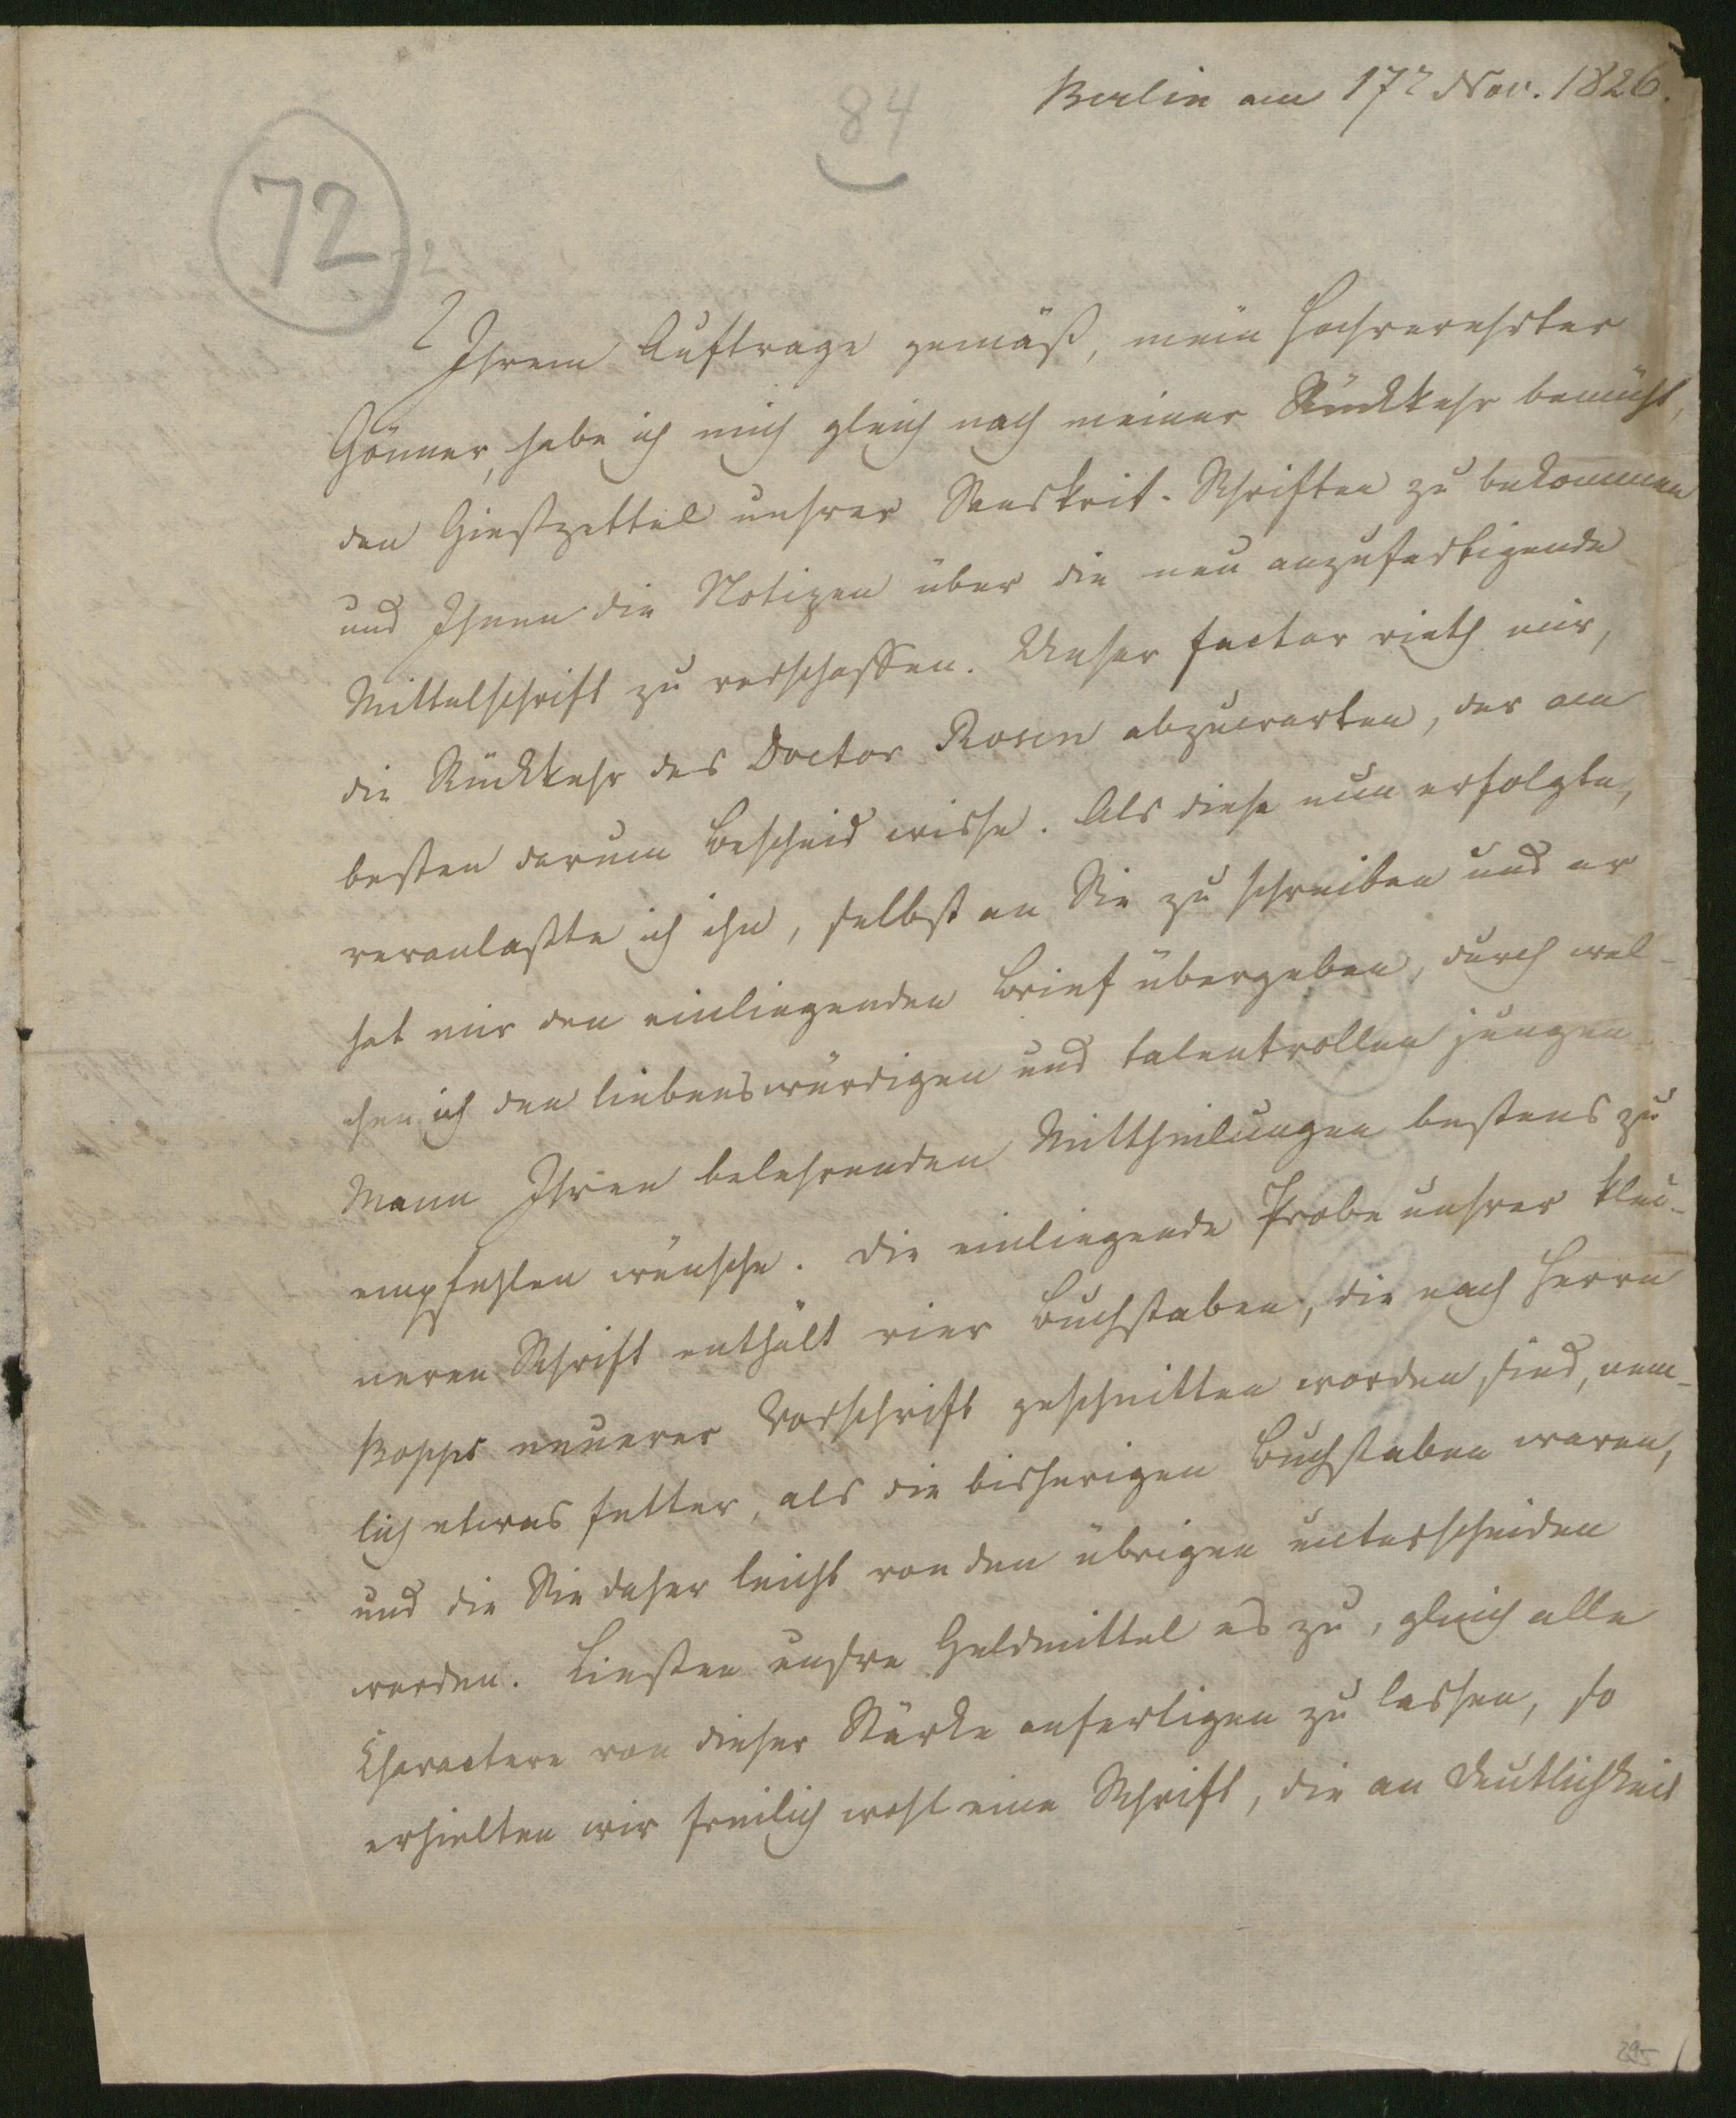 Berlin am 17t Nov. 1826.
84
72
Ihrem Auftrage gemäß, mein hochverehrter
Gönner, habe ich mich gleich nach meiner Rückkehr bemüht,
den Gießzettel unsrer Sanskrit-Schriften zu bekommen
und Ihnen die Notizen über die neu anzufertigende
Mittelschrift zu verschaffen. Unser Factor rieth mir,
die Rückkehr des Doctor Rosen abzuwarten, der am
besten darum Bescheid wisse. Als diese nun erfolgte,
veranlaßte ich ihn, selbst an Sie zu schreiben und er
hat mir den einliegenden Brief übergeben, durch wel-
chen ich den liebenswürdigen und talentvollen jungen
Mann Ihren belehrenden Mittheilungen bestens zu
empfehlen wünsche. Die einliegende Probe unsrer klei-
neren Schrift enthält vier Buchstaben, die nach Herrn
Bopps neuerer Vorschrift geschnitten worden sind, nem-
lich etwas fetter, als die bisherigen Buchstaben waren,
und die Sie daher leicht von den übrigen unterscheiden
werden. Ließen unsre Geldmittel es zu, gleich alle
Charactere von dieser Stärke anfertigen zu lassen, so
erhielten wir freilich wohl eine Schrift, die an Deutlichkeit
295